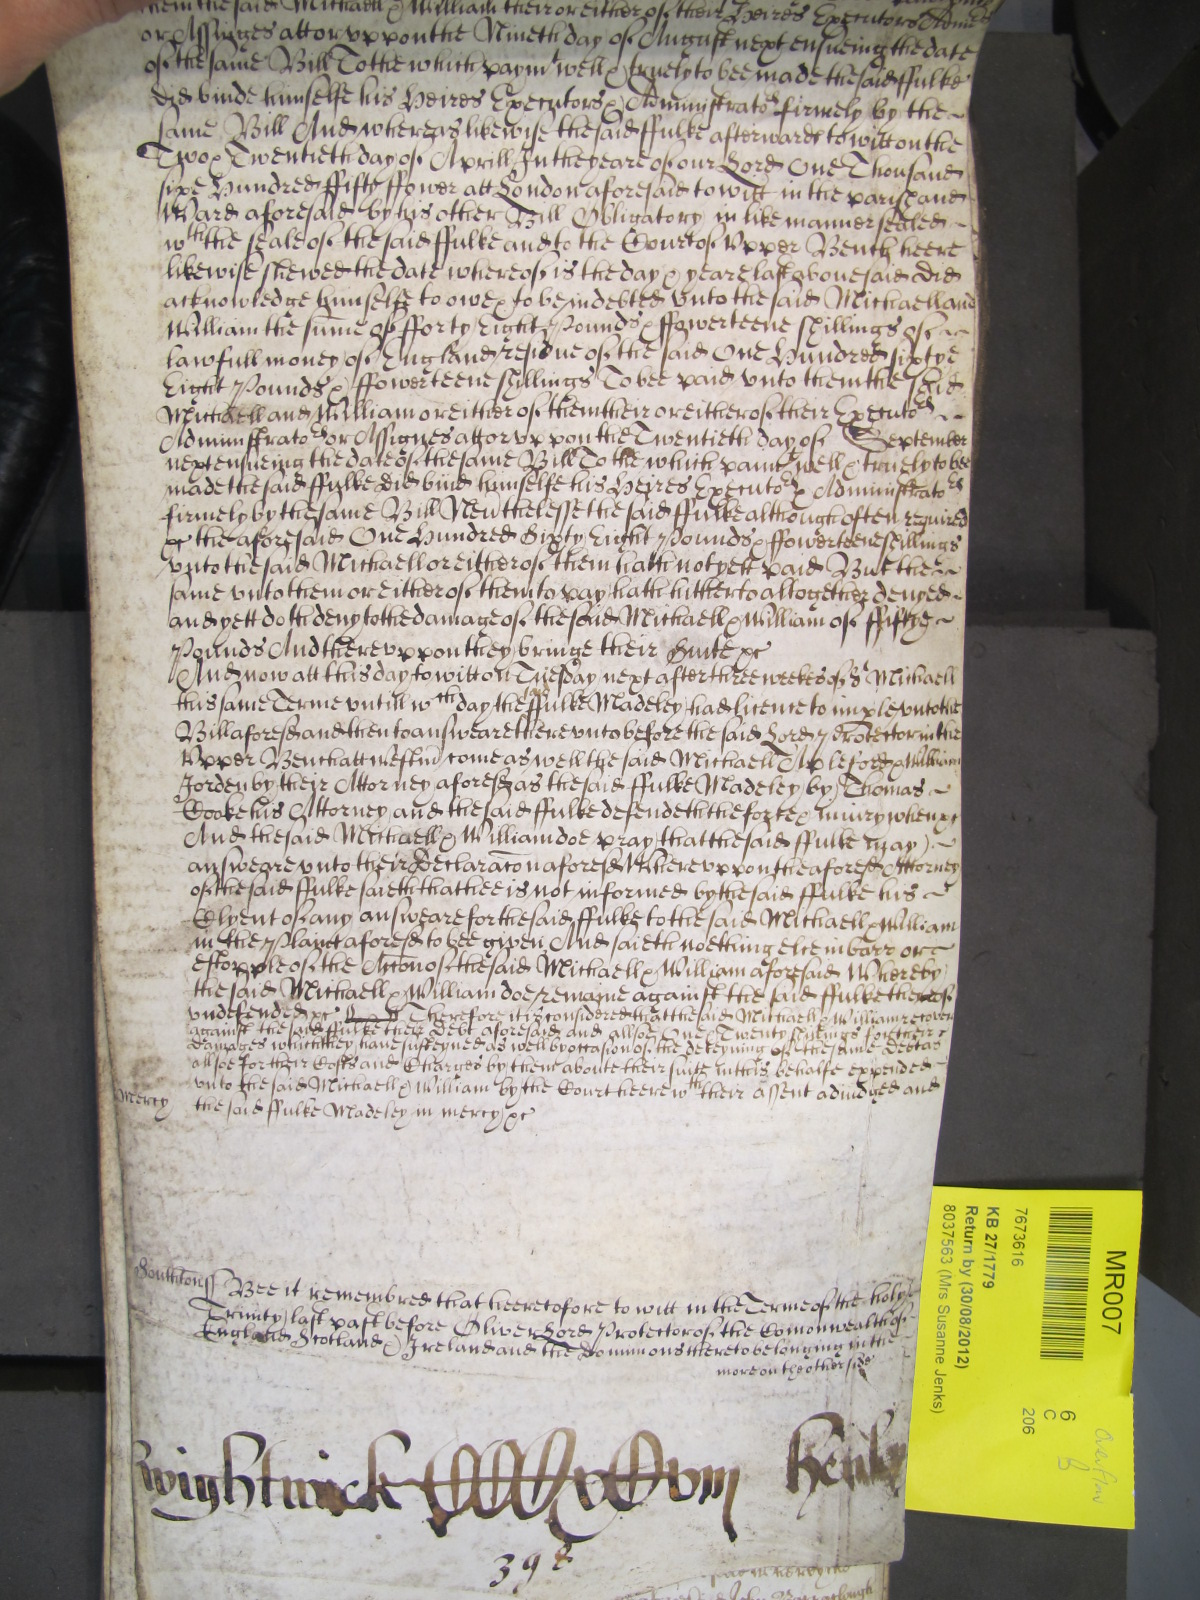 them the said Michaell & William their or either of their Heires Executors
or Assignes att or uppon the Nineth day of August next ensueing the date
of the same Bill To the which paymt well & truely to bee made the said ffulke
did binde himselfe his Heires Executors & Administrators firmely by the
same Bill And whereas likewise the said ffulke afterwards to witt on the
Two & Twentieth day of Aprill In the yeare of our Lord One Thousand
sixe Hundred ffifty ffower att London aforesaid to witt in the parish and
Ward aforesaid by his other Bill Obligatory in like manner sealed
wth the seale of the said ffulke and to the Court of Upper Bench heere
likewise shewed the date whereof is the day & yeare last abovesaid did
acknowledge himselfe to owe & to be indebted unto the said Michaell and
William the sume of fforty Eight Pounds & ffowerteene shillings of
lawfull money of England residue of the said One Hundred sixtye
Eight Pounds & ffowerteene shillings To bee paid unto them the said
Michaell and William or either of them their or either of their Executors
Administrators or Assignes att or uppon the Twentieth day of September
next ensueing the date of the same Bill To the which paimt well & truely to bee
made the said ffulke did bind himselfe his Heires Executors & Administrators
firmely by the same Bill Nevthelesse the said ffulke although often required
&c the aforesaid One Hundred Sixty Eight Pounds & ffowerteene shillings
unto the said Michaell or either of them hath not yett paid But the
same unto them or either of them to pay hath hitherto altogether denyed
and yett doth deny to the damage of the said Michaell & William of ffiftye
Pounds And thereuppon they bringe their Suite &c
And now att this day to witt on Tuesday next after three weekes of St Michaell
this same Terme untill wch day the said ffulke Madeley had licence to imple unto the
Bill aforesd and then to answeare thereunto before the said Lord Protector in the
Upper Bench att Westm come as well the said Michaell Apleford & William
Jorden by their Attorney aforesd as the said ffulke Madeley by Thomas
Cooke his Attorney and the said ffulke defendeth the force & injury when &c
And the said Michaell & William doe pray that the said ffulke may
answeare unto their Declaracon aforesd Whereuppon the aforesd Attorney
of the said ffulke saieth that hee is not informed by the said ffulke his
Clyent of any answeare for the said ffulke to the said Michaell & William
in the Plaint aforesd to bee given And saieth noething else in barr or
estopple of the Accon of the said Michaell & William aforesaid Whereby
the said Michaell & William doe remaine against the said ffulke thereof
undefended &c Therefore it is considered that the said Michaell & William recover
against the said ffulke their debt aforesaid and allsoe One & Twenty shillings for their
damages which they have susteyned as well by occasion of the deteyning of the same debt as
allsoe for their Costs and Charges by them about their suite in this behalfe expended
unto the said Michaell & William by the Court heere wth their assent adiudged and
Mercy
the said ffulke Madeley in mercy &c
Southtonss Bee it remembred that heeretofore to witt in the Terme of the holy
Trinity last past before Oliver Lord Protector of the Comonwealth of
England Scotland & Ireland and the Dominions thereto belonging in the
more on the other side
Wightwick Henley
39
MR007
7673616
KB 27/1779
Return by (30/08/2012)
8037563 (Mrs Susanne Jenks)
6
C
206
Overflow